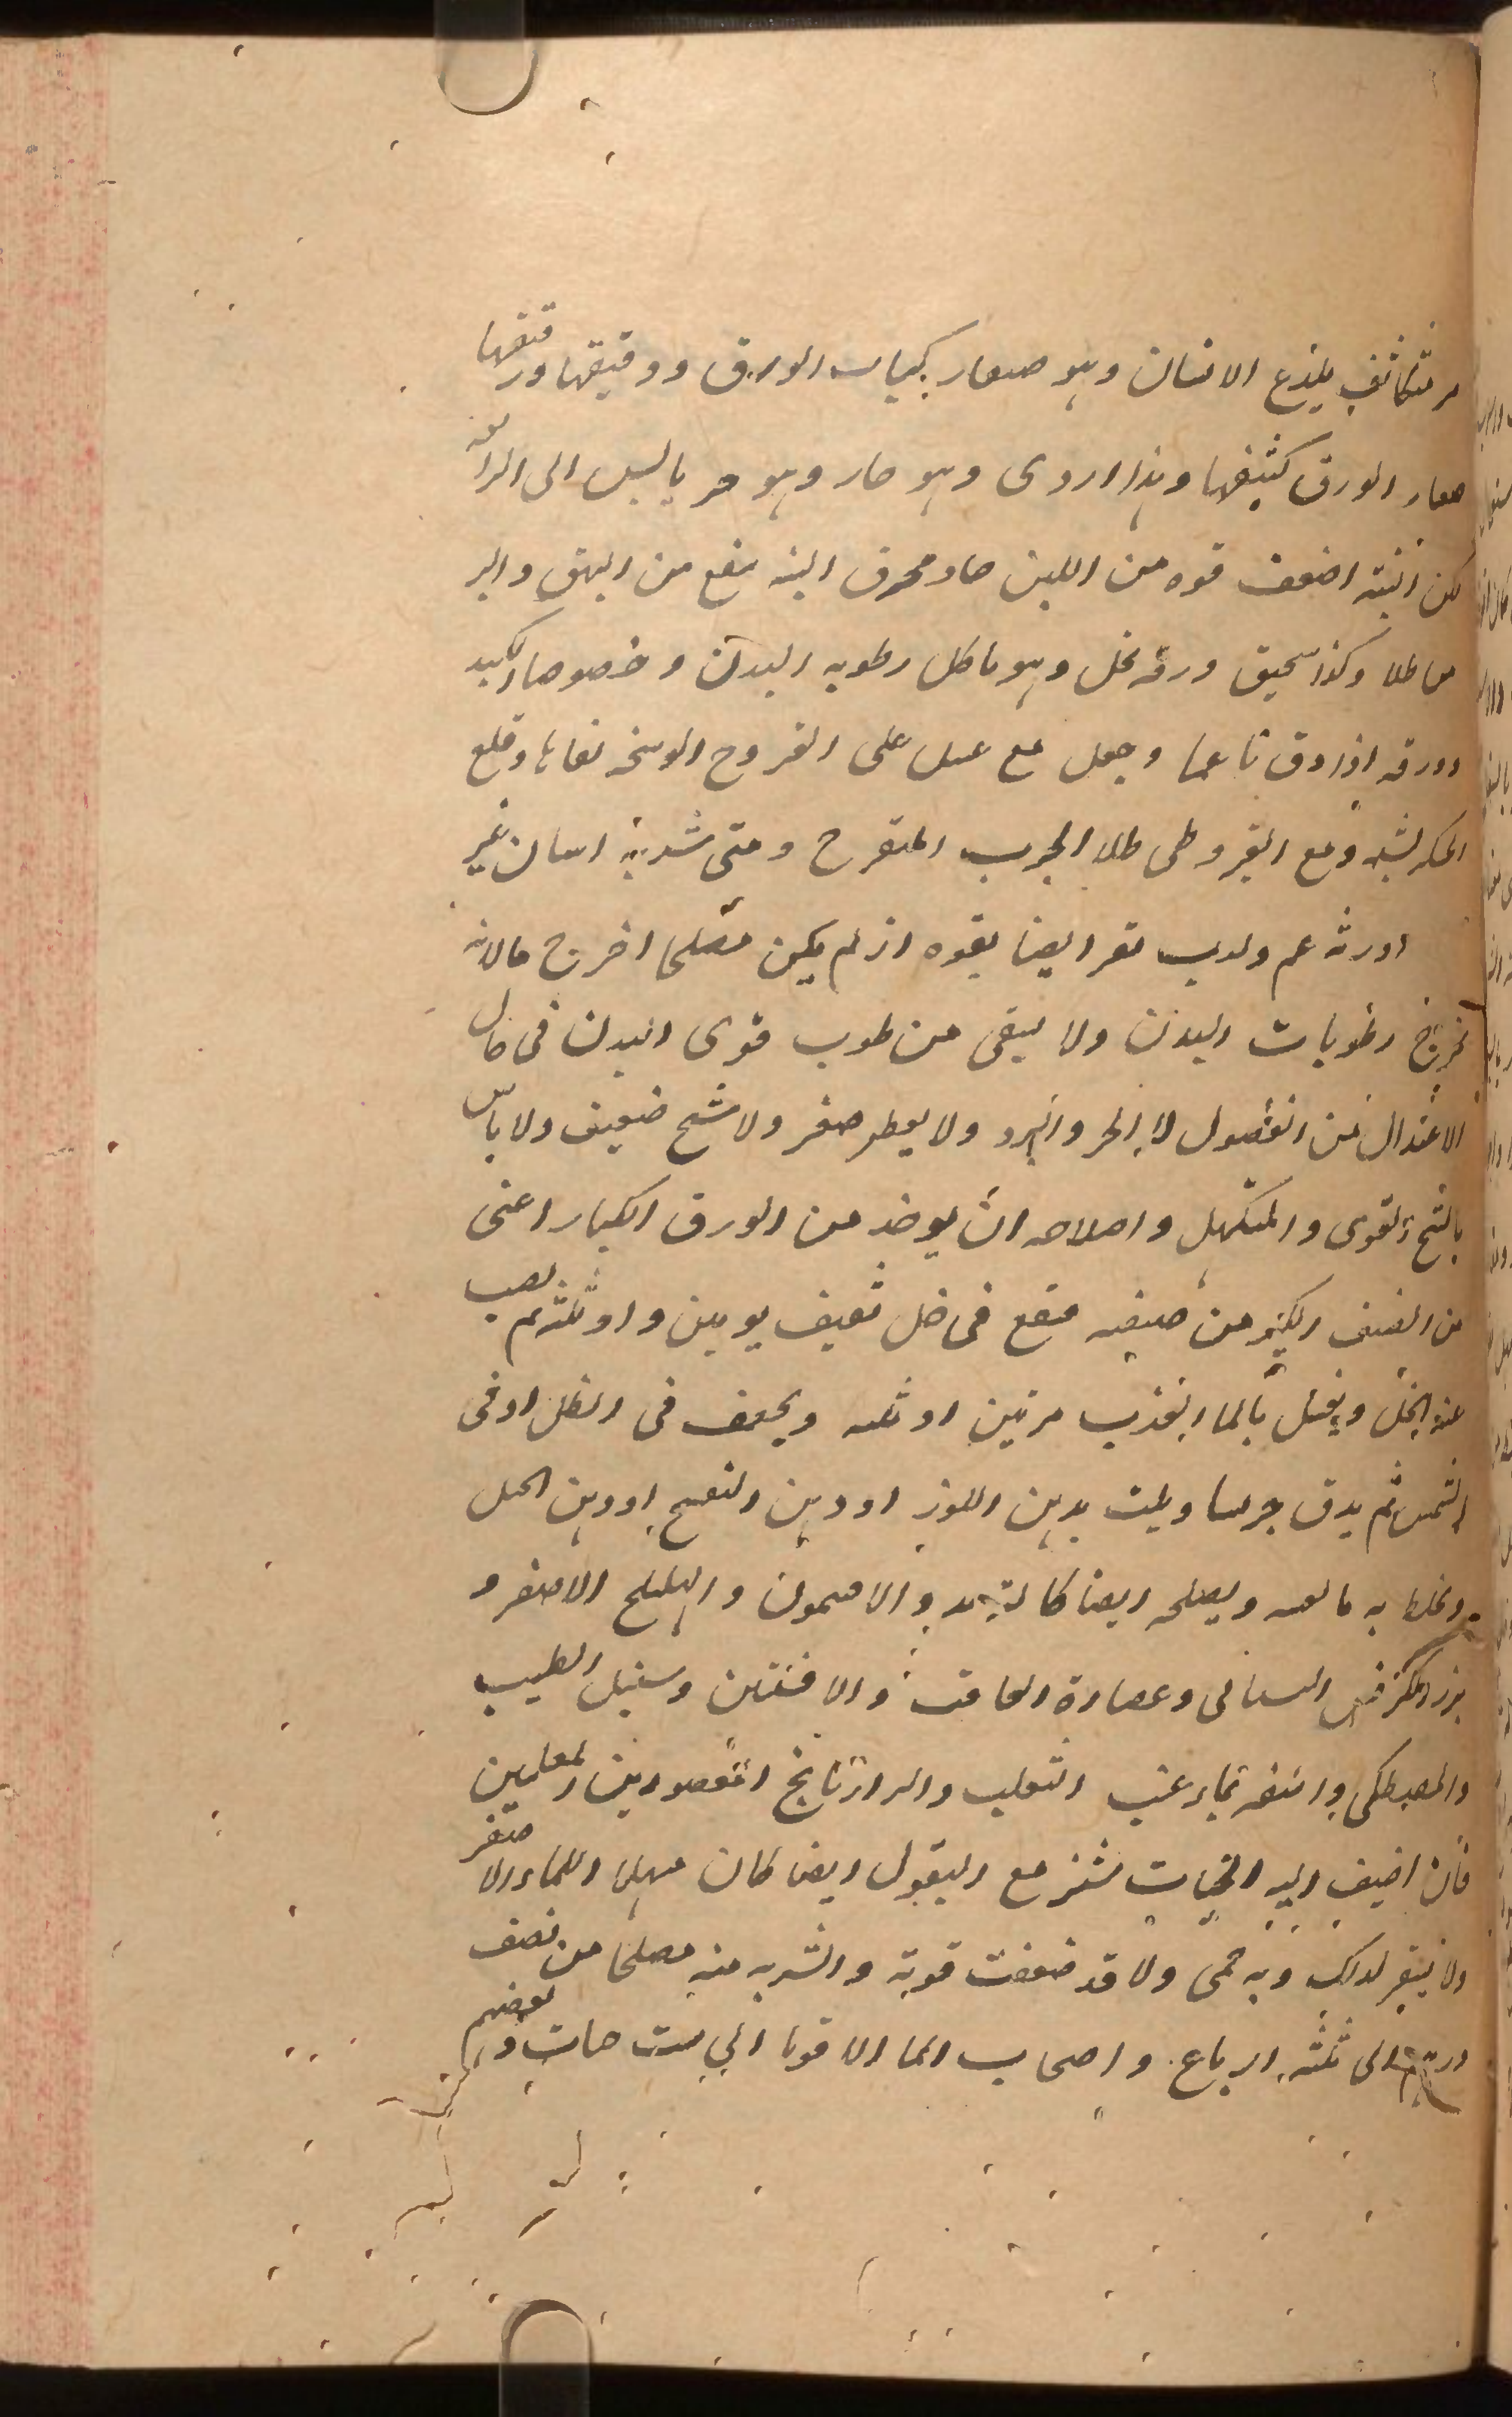 متكاثف يلذع الانسان وهو صغار كبار الورق ودقيقها ورقيقها
صغار الورق كثيفها وهذا اردى وهو حار وهو مر يابس الى الرابعة
لكن انبته اضعف قوه من اللبن حاد محرق البته ينفع من البهق والبر
ص طلا وكذا سحيق ورقه بخل وهو ياكل رطوبه البدن وخصوصا الكبد
وورقه اذا دق ناعما وجعل مع عسل على القروح الوسخه نقاها وقلع
الخكريشه ومع القيروطى طلا الجرب المتقرح ومتى شربه انسان غير
اورثه غم وكرب ايضا بقوه اذ لم يكن مصلحا اخرج مالانه
يخرج رطوبات البدن ولا يبقى من قوى البدن فى حال
الاعتدال من الفصول لا الحر والبرد ولا يعطى صغير ولا شيخ ضعيف ولا باس
بالشيخ القوى والمتكهل واصلاحه ان يوخذ من الورق الكبار اعنى
من الصنف الكبير من صنفيه فينقع فى خل ثقيف يومين او ثلثه ثم يصب
عنه الخل ويغسل بالما العذب مرتين او ثلثه ويجفف فى الظل او فى
الشمس ثم يدق جريشا ويلت بدهن اللوز او دهن البنفسج او دهن الحل
ويخلط به ويصلحه ايضا كالتربد والافتيمون والهليلج الاصفر و
بزر الكرفس البستانى وعصارة الغافت والافسنتين وسنبل الطيب
والمصطكى وانفعه بماء عنب الثعلب والرازيانج المعصورين المغليين
فان اضيف اليه مع البقول ايضا كان مسهلا للماء الاصفر
ولا لذلك وبه حمى ولا قد ضعفت قوته والشربه منه مصلحا من نصف
درهم الى ثلثه ارباع واصحاب الما الاقويا الى ست حبات وبعضهم